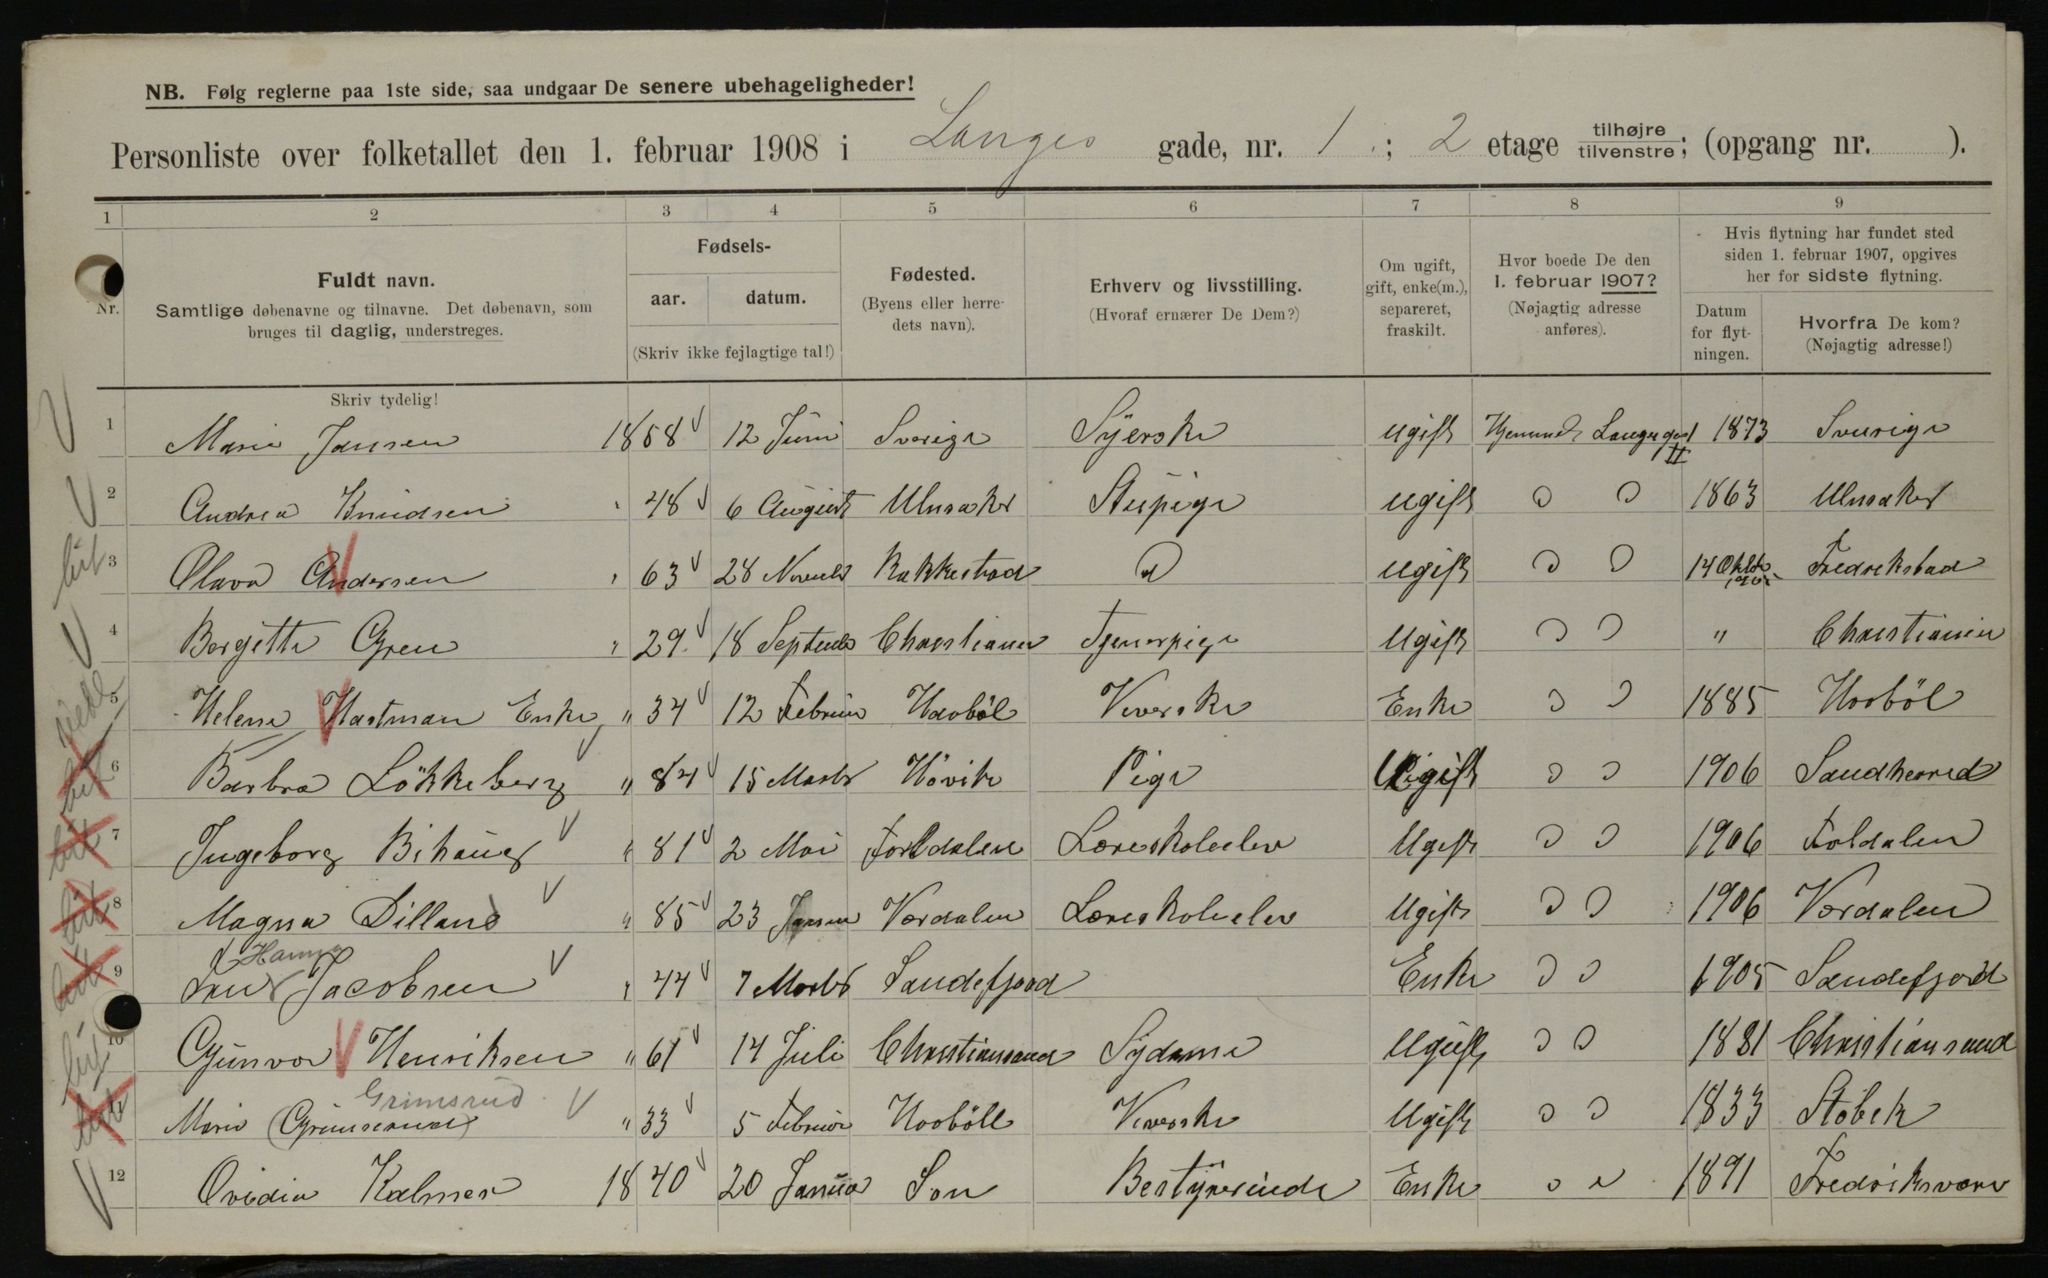 NB. Følg reglerne paa 1ste side, saa undgaar De senere ubehageligheder!
Personliste over folketallet den 1. februar 1908 i Langes gade, nr. 1 ; 2 etage tilhøjre tilvenstre; (opgang nr. ).
1 2 3 4 5 6 7 8 9
Nr. Fuldt navn. Samtlige døbenavne og tilnavne. Det døbenavn, som bruges til daglig, understreges.
Fødsels- aar. datum. (Skriv ikke fejlagtige tal!)
Fødested. (Byens eller herredets navn).
Erhverv og livsstilling. (Hvoraf ernærer De Dem?)
Om ugift, gift, enke(m.), separeret, fraskilt.
Hvor boede De den 1. februar 1907? (Nøjagtig adresse anføres).
Hvis flytning har fundet sted siden 1. februar 1907, opgives her for sidste flytning.
Datum for flytningen. Hvorfra De kom? (Nøjagtig adresse!)
Skriv tydelig!
1 Marie Jansen 1858 12 Juni Sverige Syerske ugift Langesgad II 1873 Sverige
2 Andrea Knudsen " 48 6 August Ulnsaker Stuepige ugift " " 1863 Ulnsaker
3 Olava Andersen " 63 28 Novemb Rakkestad " ugift " " 14 Oktb Fredrikstad
4 Bergitte Gren " 29 18 Septemb Christiania Tjenerpige Ugift " " " Christiania
5 Helene Hartman Enke " 34 12 Februar Haabøl Veverske Enke " " 1885 Hobøl
6 Barbra Løkkeberg " 84 15 Marts Høvik Pige Ugift " " 1906 Sandherred
7 Ingeborg Bihaug " 81 2 Mai Foldalen Læreskoleelev Ugift " " 1906 Foldalen
8 Magna Dilland " 85 23 Januar Værdalen Læreskoleelev Ugift " " 1906 Værdalen
9 Hanna Jacobsen " 44 7 Marts Sandefjord Enke " " 1905 Sandefjord
10 Gunvor Henriksen " 61 14 Juli Christiansand Sydame Ugift " " 1881 Christiansand
Grimsrud
11 Marie (Grimserud) " 33 5 Februar Hobøll Veverske Ugift " " 1833
12 Ovidia Kalmer 1840 20 Januar Son Bestyrerinde Enke " " 1891 Fredriksværn